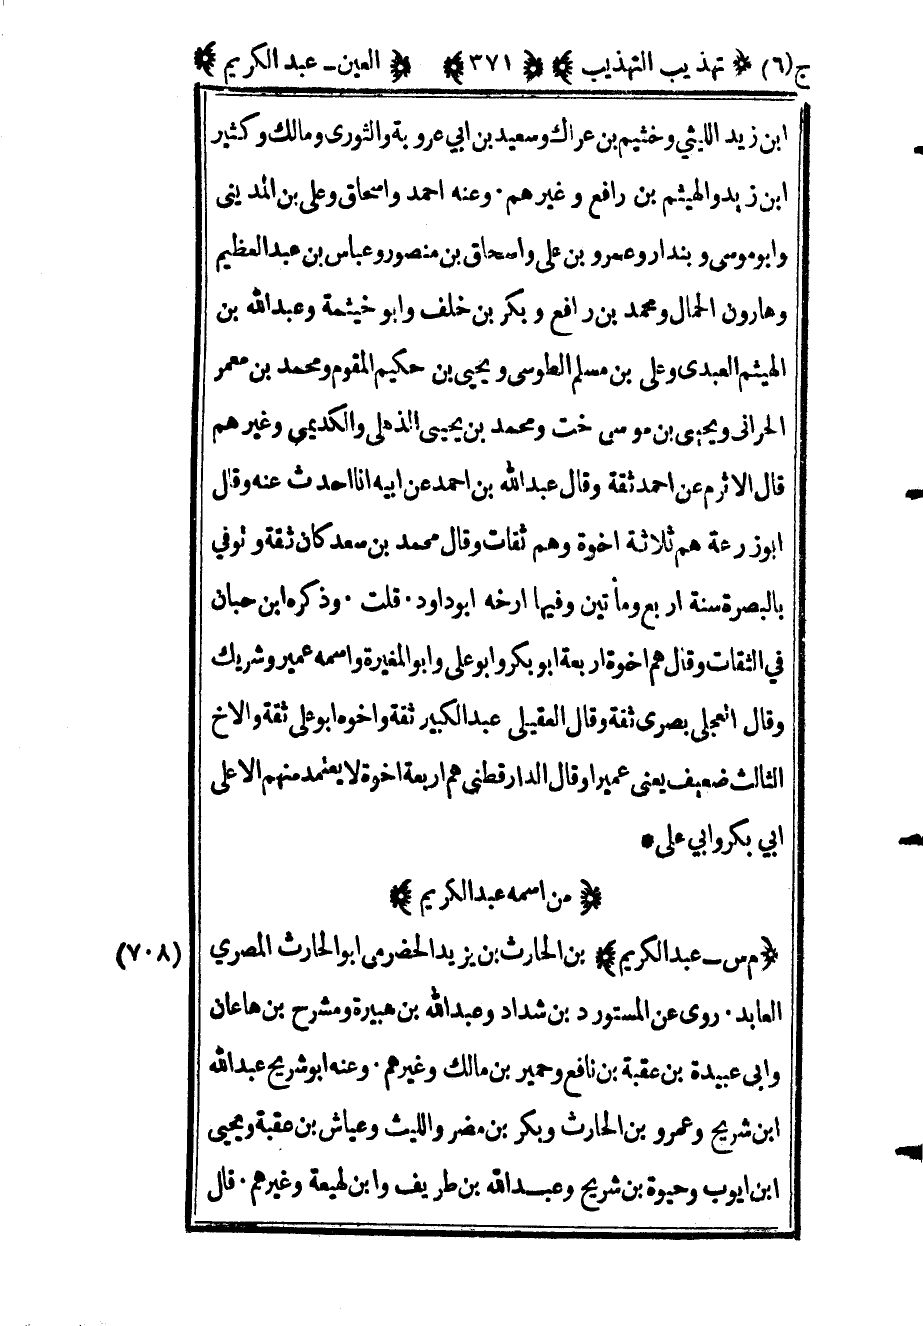 ج(٦) ﴿ تهذيب التهذيب ﴾ ﴿ ٣٧١ ﴾ ﴿ العين ـ عبد الكريم ﴾
ابن زيد الليثي وخثيم بن عراك وسعيد بن ابي عروبة والثورى ومالك وكثير
ابن زيد والهيثم بن رافع و غيرهم · وعنه احمد واسحاق وعلى بن المدينى
وابو موسى و بندار وعمرو بن على واسحاق بن منصور وعباس بن عبد العظيم
وهارون الحمال ومحمد بن رافع و بكر بن خلف وابو خيثمة وعبد الله بن
الهيثم العبدى وعلى بن مسلم الطوسى و يحيى بن حكيم المقوم ومحمد بن معمر
الحرانى ويحيى بن موسى خت ومحمد بن يحيى الذهلى والكديمي وغيرهم
قال الاثرم عن احمد ثقة وقال عبد الله بن احمد عن ابيه انا احدث عنه وقال
ابو زرعة هم ثلاثة اخوة وهم ثقات وقال محمد بن سعد كان ثقة و توفي
بالبصرة سنة اربع ومأتين وفيها ارخه ابو داود · قلت · وذكره ابن حبان
في الثقات وقال هم اخوة اربعة ابو بكر وابو على وابو المغيرة واسمه عمير وشريك
وقال العجلى بصرى ثقة وقال العقيلى عبد الكبير ثقة واخوه ابو على ثقة والاخ
الثالث ضعيف يعنى عميرا وقال الدارقطنى هم اربعة اخوة لا يعتمد منهم الا على
ابي بكر وابي على *
﴿ من اسمه عبد الكريم ﴾
﴿ م س ـ عبد الكريم ﴾ بن الحارث بن يزيد الحضرمى ابو الحارث المصري (٧٠٨)
العابد · روى عن المستورد بن شداد وعبد الله بن هبيرة ومشرح بن هاعان
وابى عبيدة بن عقبة بن نافع وحمير بن مالك وغيرهم · وعنه ابو شريح عبد الله
ابن شريح وعمرو بن الحارث وبكر بن مضر والليث وعياش بن عقبة ويحيى
ابن ايوب وحيوة بن شريح وعبد الله بن طريف وابن لهيعة وغيرهم · قال